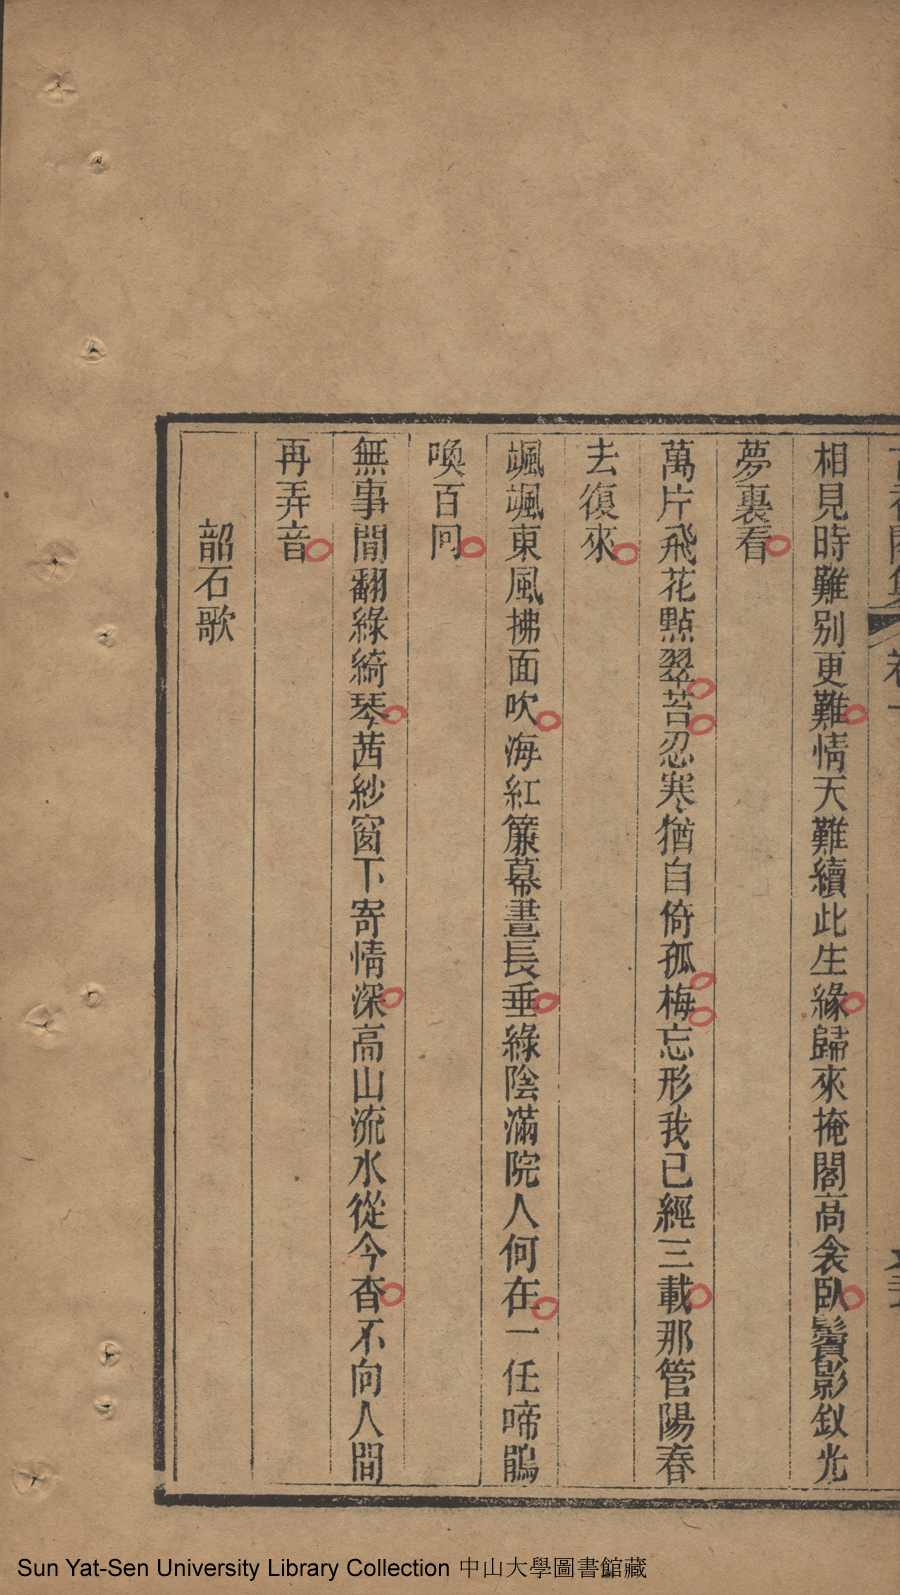 相見時難別更難情天難續此生緣歸來掩閣高衾臥鬢影釵光
夢裏看
萬片飛花點翠苔忍寒猶自倚孤梅忘形我已經三載那管陽春
去復來
颯颯東風拂面吹海紅簾幕晝長垂綠陰滿院人何在一任啼鵑
喚百回
無事閒翻綠綺琴茜紗窗下寄情深高山流水從今杳不向人間
再弄音
韶石歌
Sun Yat-Sen University Library Collection 中山大學圖書館藏